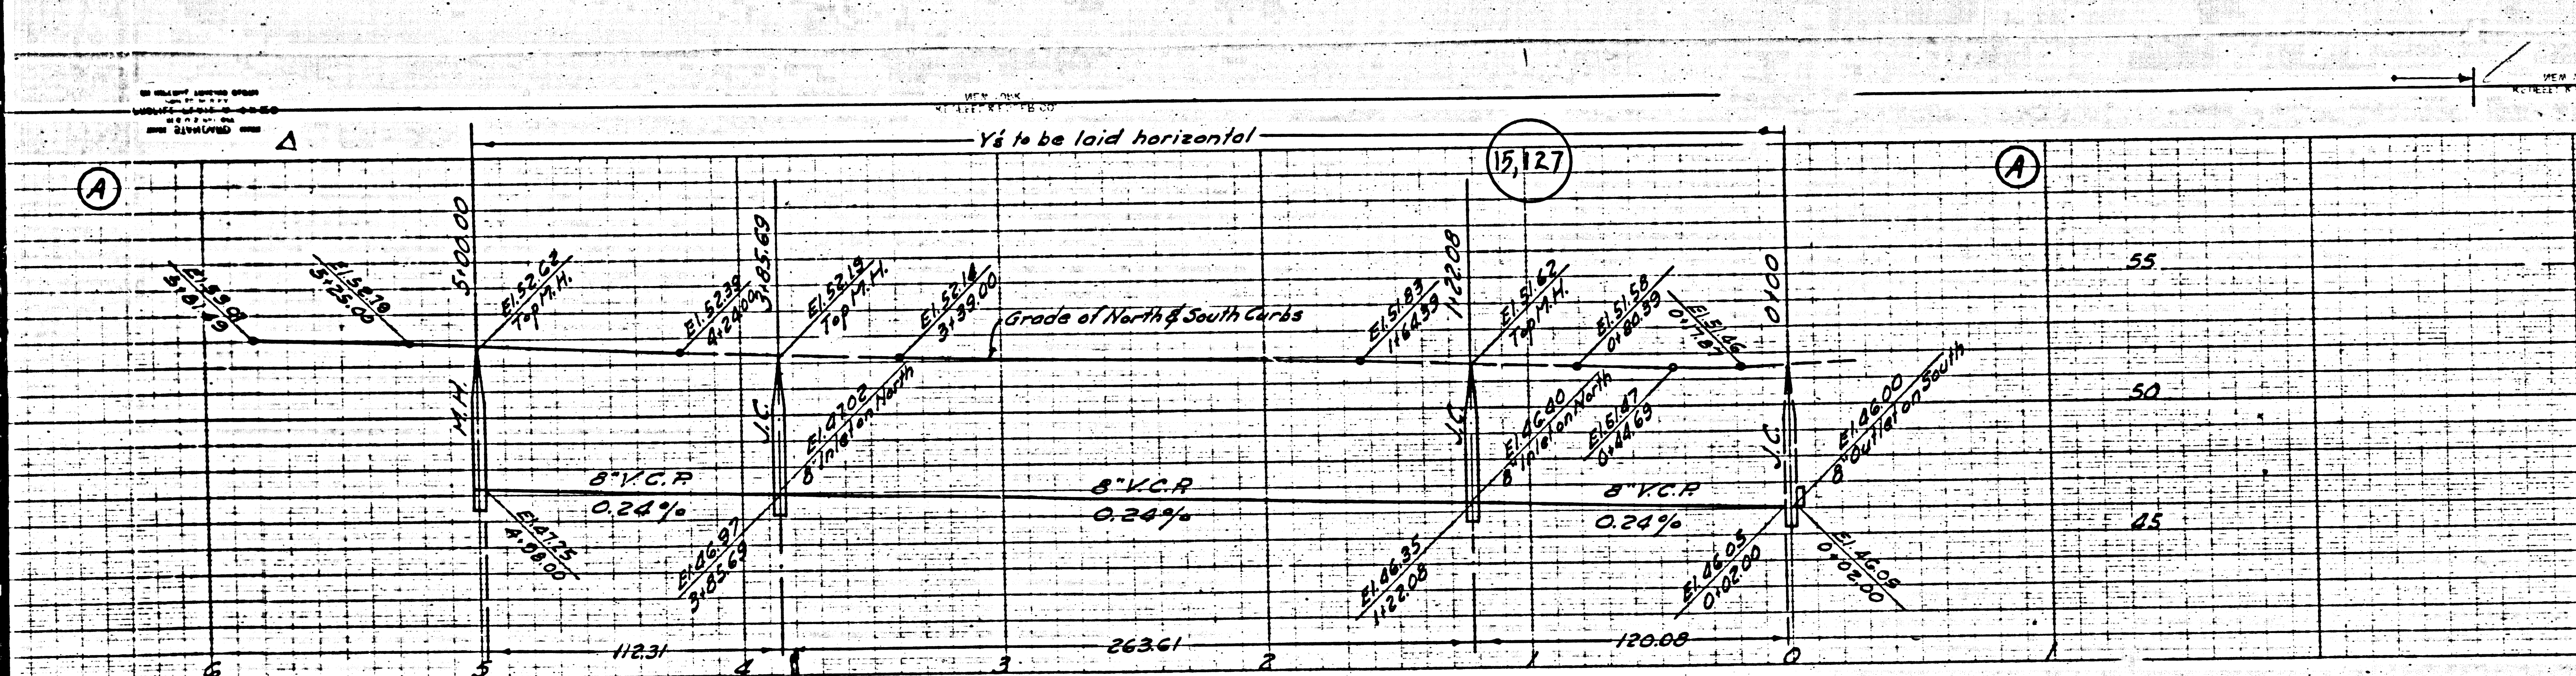 STANDARD
Δ
Y's to be laid horizontal
15,127
A
A
5+00.00
3+85.69
1+22.08
0+00
El. 53.01
5+81.49
El. 52.79
5+25.00
El. 52.62
Top M.H.
El. 52.39
4+24.00
El. 52.19
Top M.H.
El. 52.14
3+39.00
Grade of North & South Curbs
El. 51.83
1+64.39
El. 51.62
Top M.H.
El. 51.58
0+80.39
El. 51.46
0+17.87
55
50
45
M.H.
J.C.
J.C.
J.C.
El. 47.02
8" Inlet on North
El. 46.40
8" Inlet on North
El. 51.47
0+44.69
El. 46.00
8" Outlet on South
8" V.C.P.
0.24%
8" V.C.P.
0.24%
8" V.C.P.
0.24%
El. 47.25
4+98.00
El. 46.97
3+85.69
El. 46.35
1+22.08
El. 46.05
0+02.00
El. 46.05
0+02.00
112.31
263.61
120.08
6 5 4 3 2 1 0 1